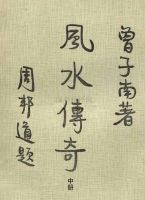 曾子南著
風水傳奇
中冊
周邦道題